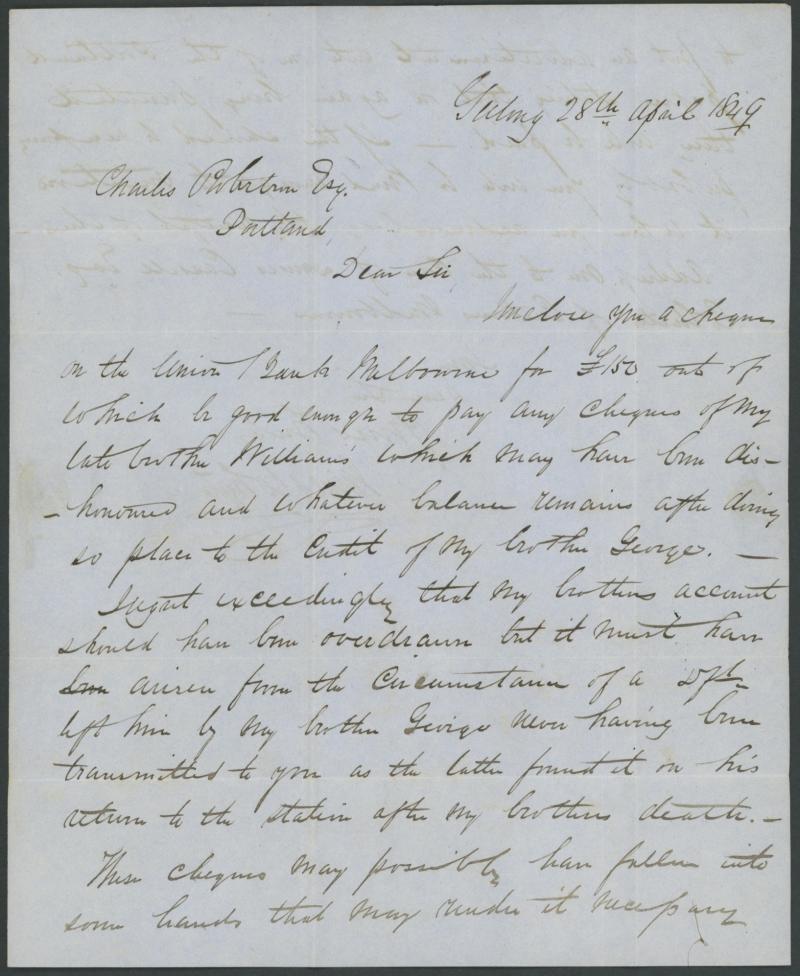 Geelong 28th April 1849
Charles Robertson Esq.
Portland
Dear Sir
I inclose you a cheque
on the Union Bank Melbourne for £150 out of
which be good enough to pay any cheques of my
late brother William's which may have been dis-
-honoured and whatever balance remains after doing
so place to the credit of my brother George. —
I regret exceedingly that my brothers account
should have been overdrawn but it must have
been arisen from the circumstance of a Dft
left him by my brother George never having been
transmitted to you as the latter found it on his
return to the station after my brothers death. —
These cheques may possibly have fallen into
some hands that may render it necessary